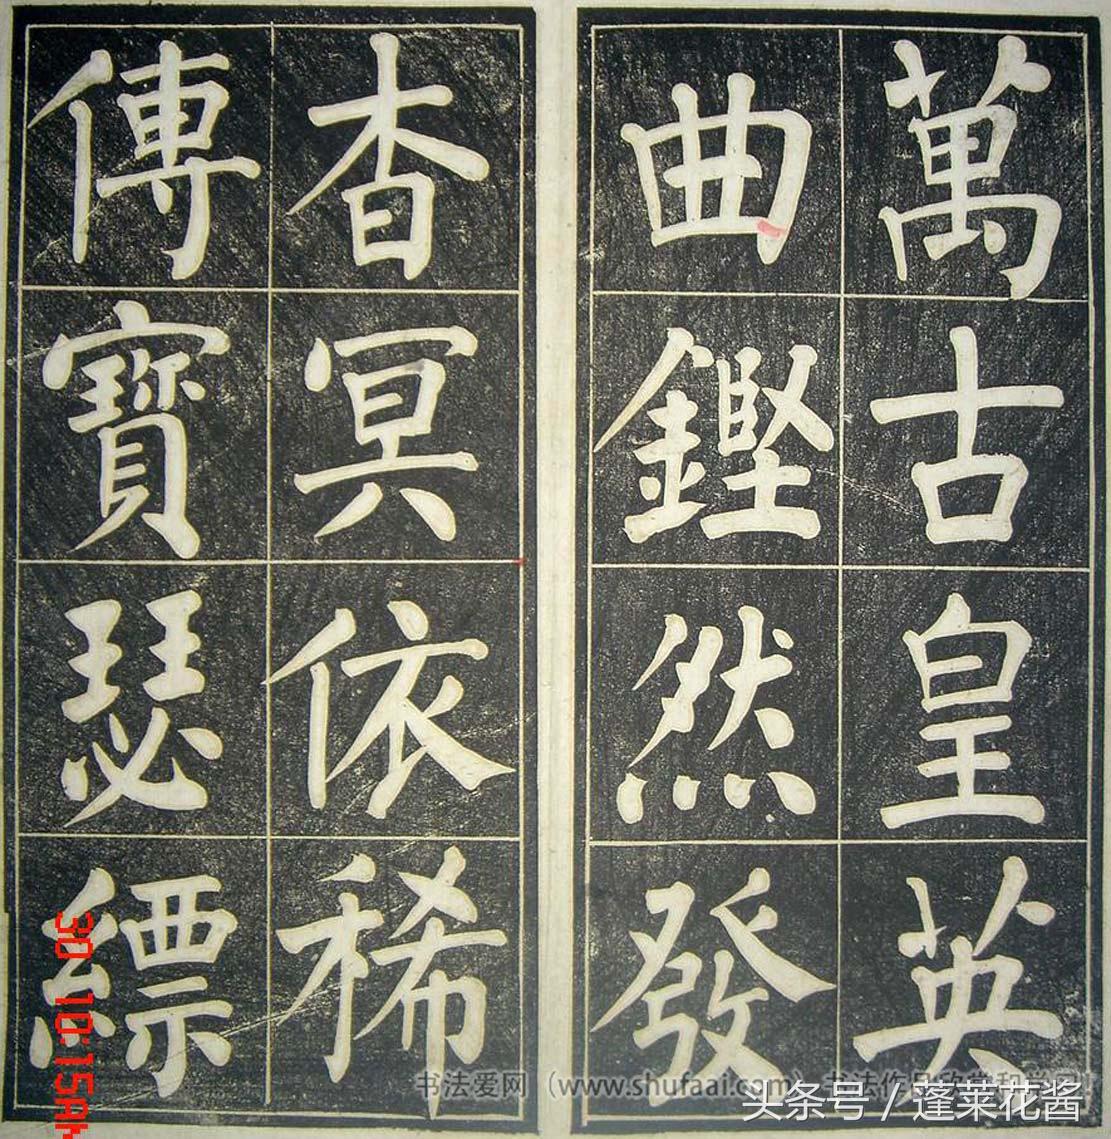 萬古皇英
曲鏗然發
杳冥依稀
傳寶瑟縹
30 10:15AM
书法爱网（www.shufaai.com）书法作品欣赏和
头条号 / 蓬莱花酱